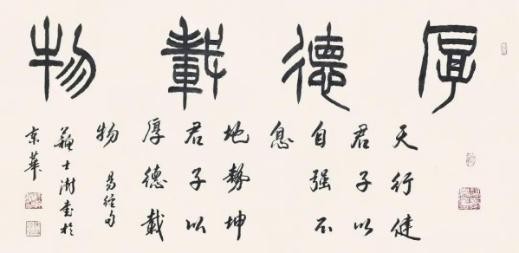 厚德載物
天行健
君子以
自强不
息
地勢坤
君子以
厚德載
物 易經句
蘇士澍書於
京華